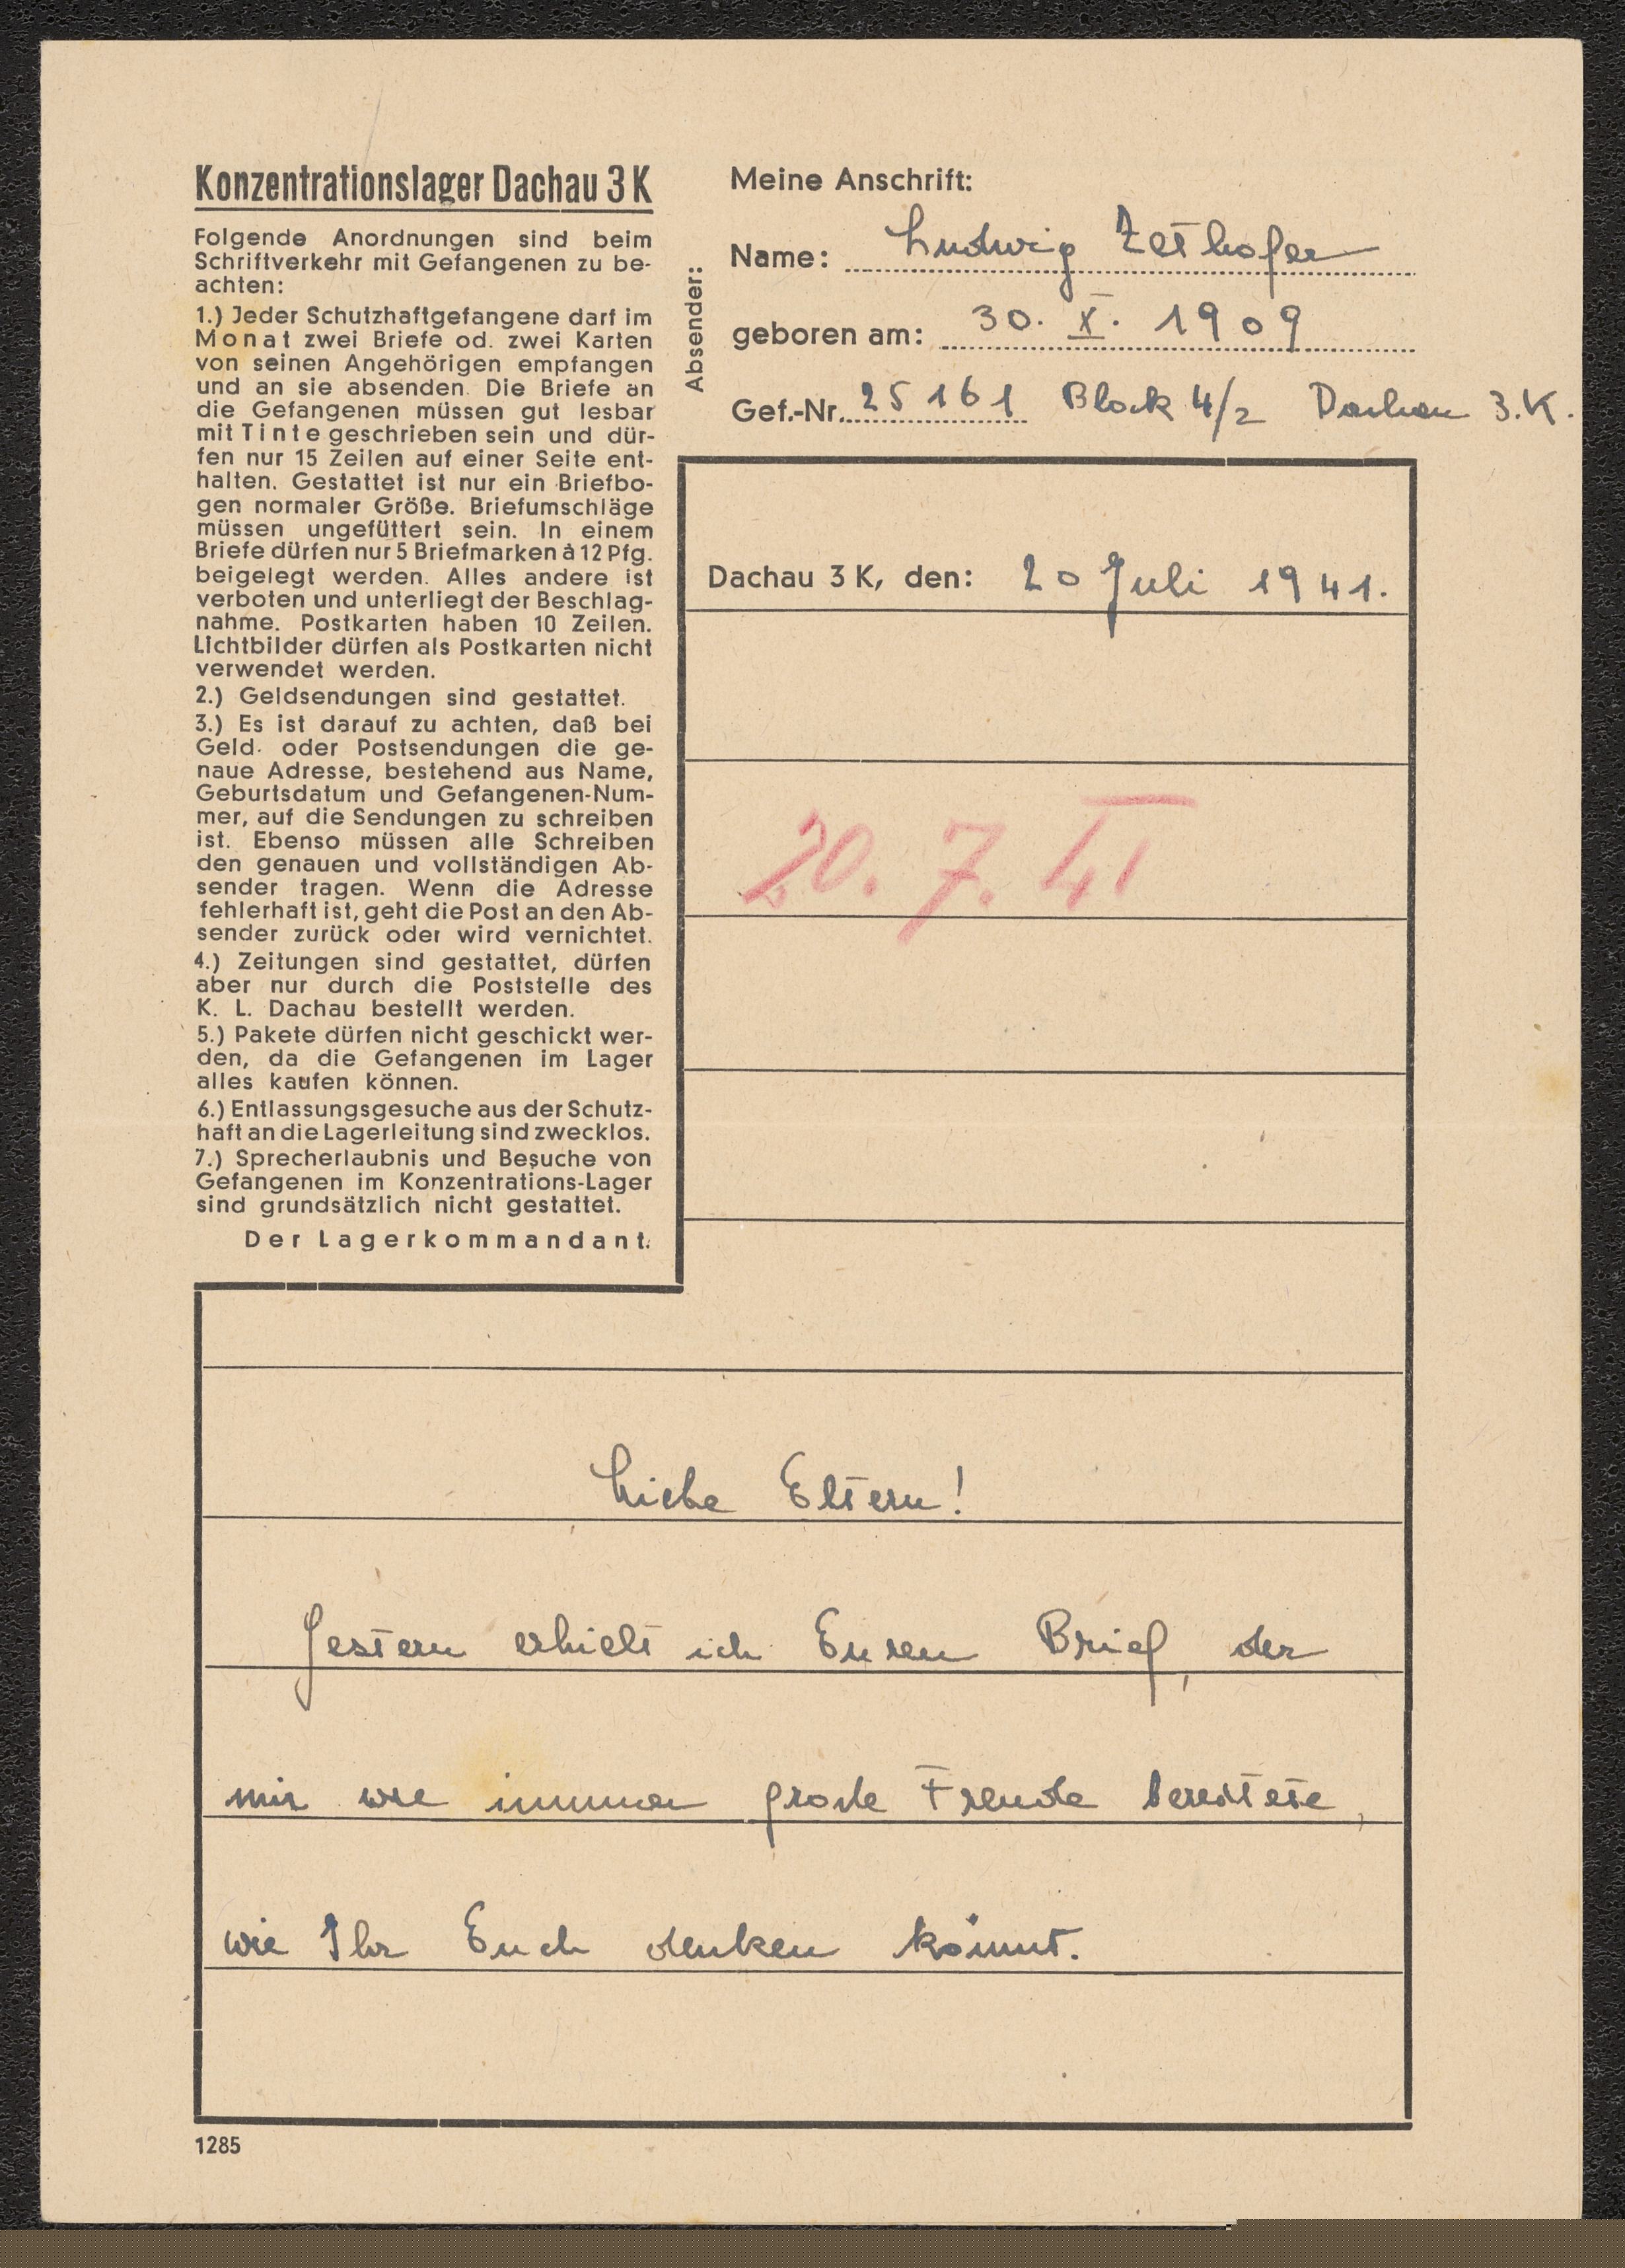 Konzentrationslager Dachau 3 K
Folgende Anordnungen sind beim
Schriftverkehr mit Gefangenen zu be-
achten:
1.) Jeder Schutzhaftgefangene darf im
Monat zwei Briefe od. zwei Karten
von seinen Angehörigen empfangen
und an sie absenden. Die Briefe an
die Gefangenen müssen gut lesbar
mit Tinte geschrieben sein und dür-
fen nur 15 Zeilen auf einer Seite ent-
halten. Gestattet ist nur ein Briefbo-
gen normaler Größe. Briefumschläge
müssen ungefüttert sein. In einem
Briefe dürfen nur 5 Briefmarken à 12 Pfg.
beigelegt werden. Alles andere ist
verboten und unterliegt der Beschlag-
nahme. Postkarten haben 10 Zeilen.
Lichtbilder dürfen als Postkarten nicht
verwendet werden.
2.) Geldsendungen sind gestattet.
3.) Es ist darauf zu achten, daß bei
Geld- oder Postsendungen die ge-
naue Adresse, bestehend aus Name,
Geburtsdatum und Gefangenen-Num-
mer, auf die Sendungen zu schreiben
ist. Ebenso müssen alle Schreiben
den genauen und vollständigen Ab-
sender tragen. Wenn die Adresse
fehlerhaft ist, geht die Post an den Ab-
sender zurück oder wird vernichtet.
4.) Zeitungen sind gestattet, dürfen
aber nur durch die Poststelle des
K. L. Dachau bestellt werden.
5.) Pakete dürfen nicht geschickt wer-
den, da die Gefangenen im Lager
alles kaufen können.
6.) Entlassungsgesuche aus der Schutz-
haft an die Lagerleitung sind zwecklos.
7.) Sprecherlaubnis und Besuche von
Gefangenen im Konzentrations-Lager
sind grundsätzlich nicht gestattet.
Der Lagerkommandant.
Absender:
Meine Anschrift:
Name: Ludwig Zethofer
geboren am: 30. X. 1909
Gef.-Nr. 25161 Block 4/2 Dachau 3.K.
Dachau 3 K, den: 20 Juli 1941.
20. 7. 41
Liebe Eltern!
Gestern erhielt ich Euren Brief, der
mir wie immer große Freude bereitete,
wie Ihr Euch denken könnt.
1285